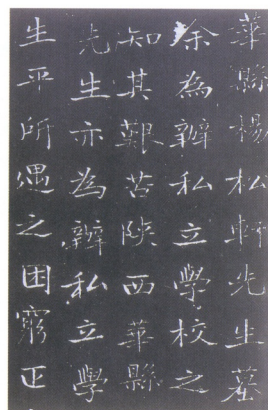 華縣楊松軒先生墓
余為辦私立學校之
知其艱苦陝西華縣
先生亦為辦私立學
生平所遇之困窮正